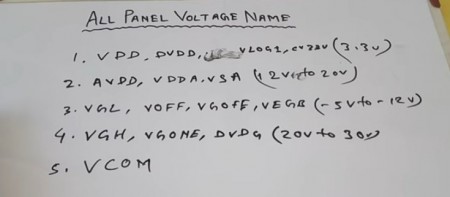 ALL PANEL VOLTAGE NAME
1. VDD, DVDD, VLOGI, (3.3v)
2. AVDD, VDDA, VSA (12v to 20v)
3. VGL, VOFF, VGOFF, VEGB (-5v to -12v)
4. VGH, VGONE, DVDG (20v to 30v)
5. VCOM